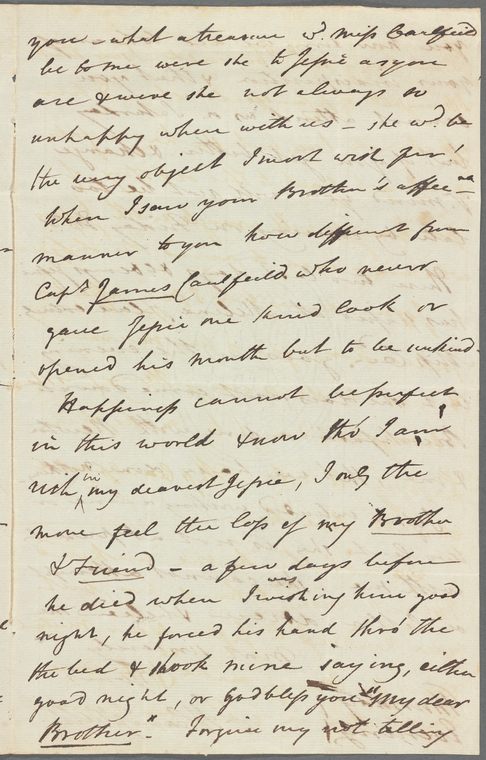 you – what a treasure wd. Miss Caulfeild
be to me were she to Jessie as you
are & were she not always so
unhappy when with us – she wd. be
the very object I most wish for!
When I saw your Brother's affec–
manner to you how different from
Capt. James Caulfeild who never
gave Jessie one kind look or
opened his mouth but to be unkind.
Happiness cannot be perfect
in this world & now tho' I am
rich in my dearest Jessie, I only the
more feel the loss of my Brother
& Friend – a few days before
he died when I was wishing him good
night, he forced his hand thro' the
the bed & shook mine saying, either
good night, or God bless you "My dear
Brother". Forgive my not telling